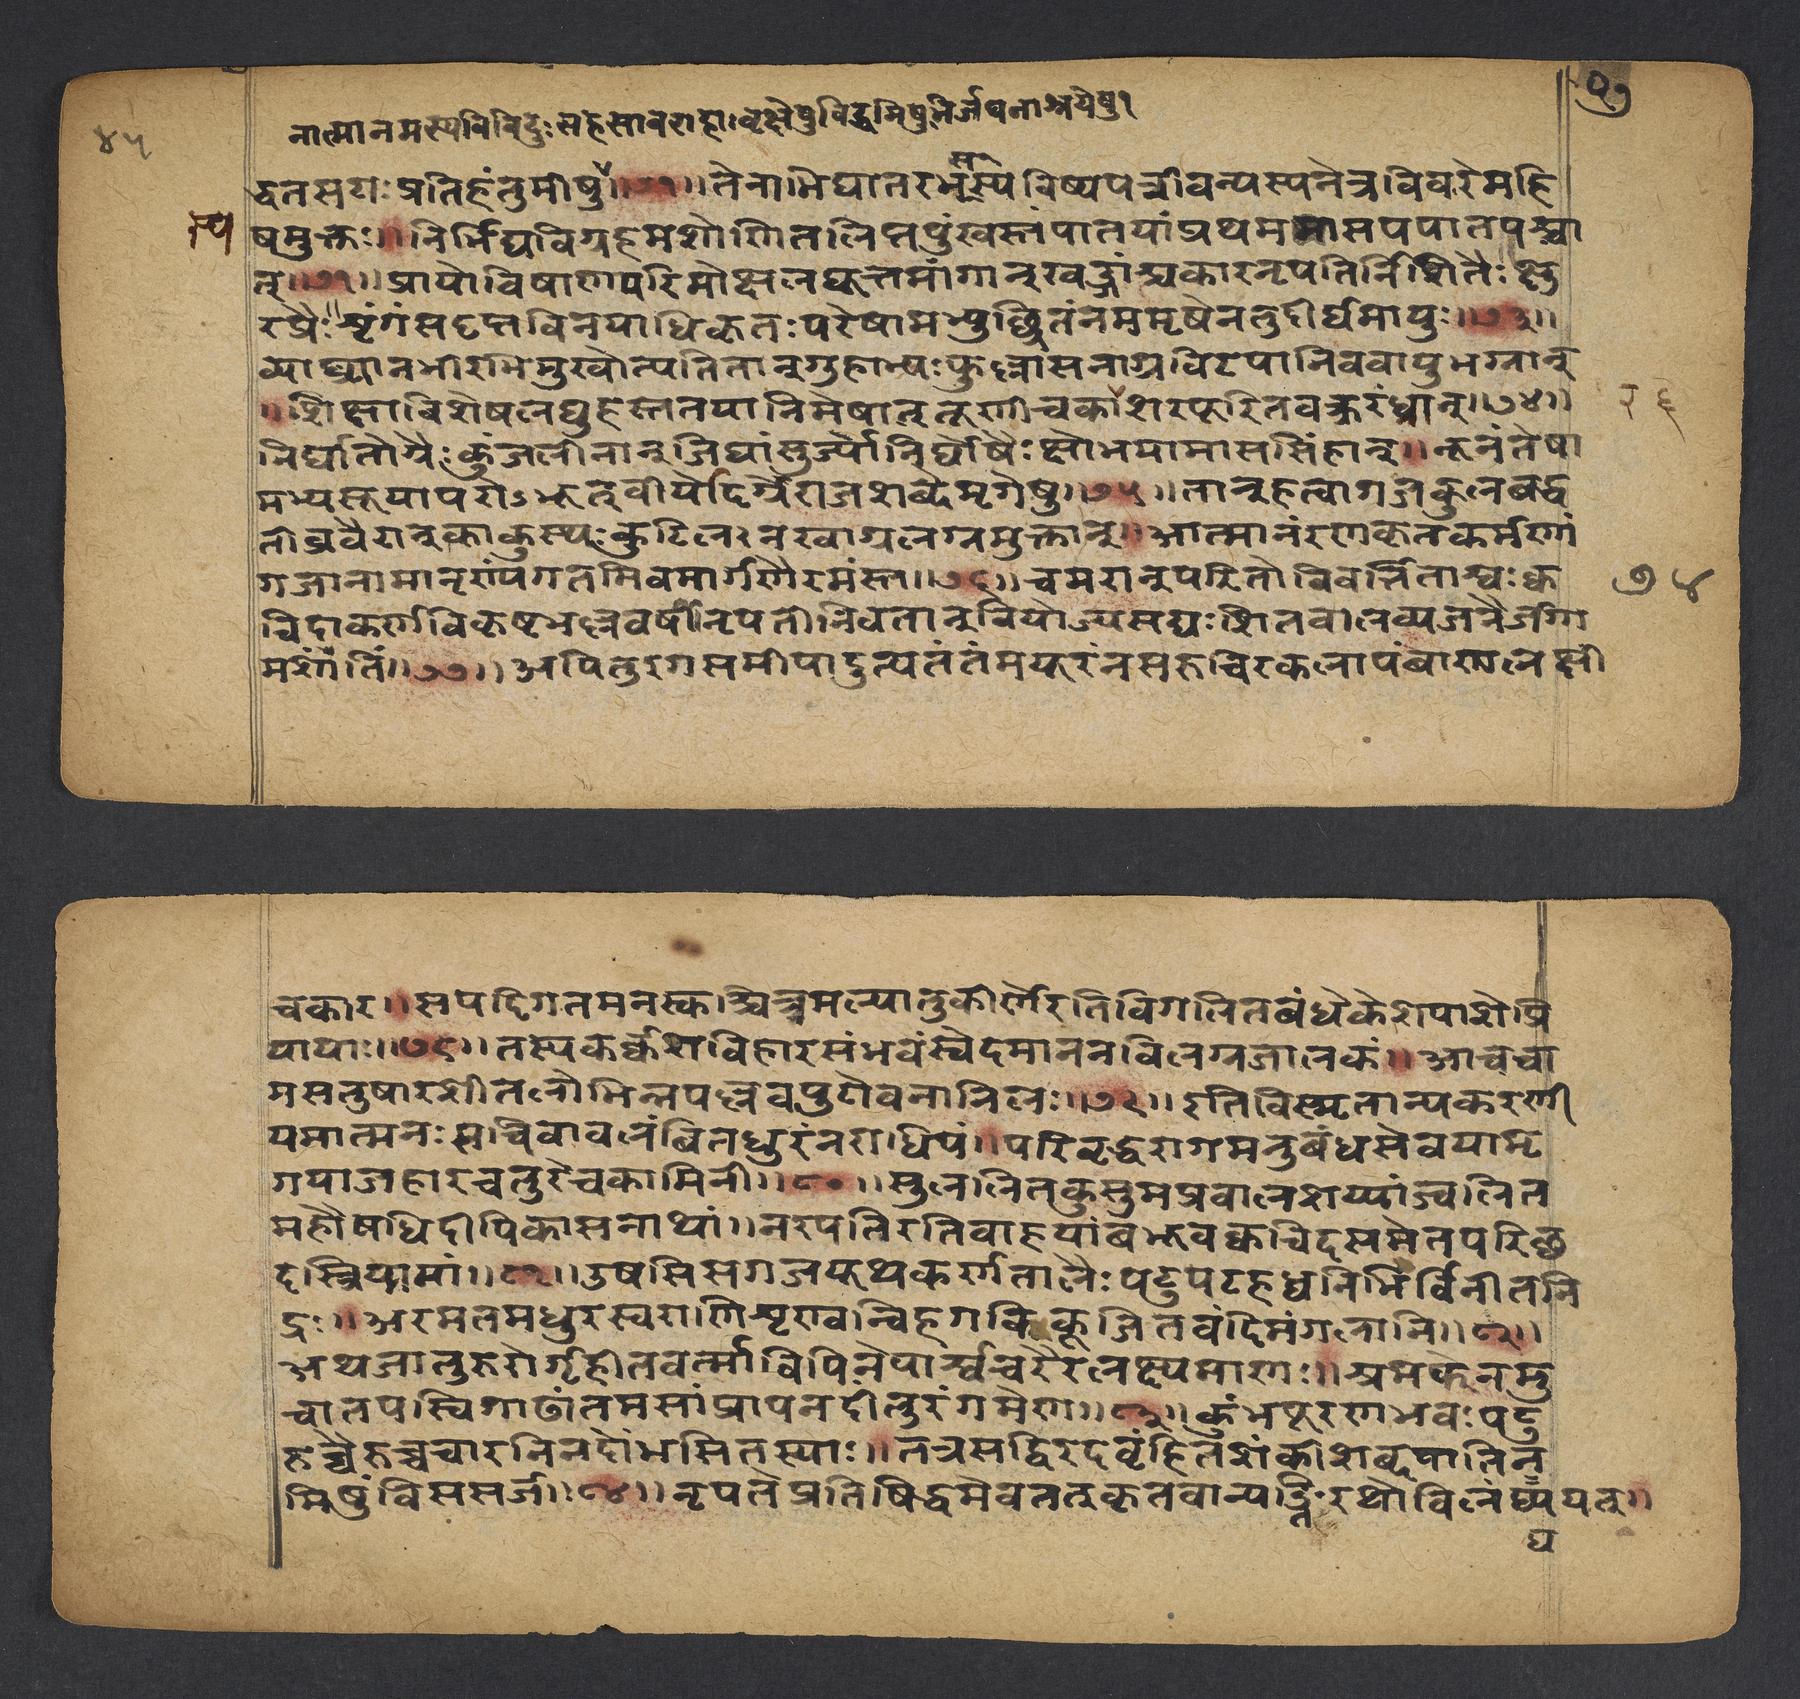 ४५
नात्मानमस्यविविदुः सहसावराहा।वृक्षेषुविद्धमिषुभिर्जघनाश्रयेषु१
७७
द्धतसटाः प्रतिहंतुमीषु॥७१॥तेनाभिघातरभसस्यविष्यपत्रीवन्यस्यनेत्रविवरेमहि
स्य
षमुक्तः॥निर्भिद्यविग्रहमशोणितलिप्तपुंखस्तंपातयांप्रथममासपपातपश्चा
त्॥७२॥प्रायोविषाणपरिमोक्षलघूत्तमांगान्खड्गांश्चकारनृपतिर्निशितैः क्षु
रप्रैः॥शृंगंसदृप्तविनयाधिकृतः परेषामभ्युच्छ्रितंनममृषेनतुदीर्घमायुः॥७३॥
व्याघ्रानभीरभिमुखोत्पतितान्गुहाभ्यः फुल्लासनाग्रविटपानिववायुभग्नान्
॥शिक्षाविशेषलघुहस्ततयानिमेषात्तूणीचकारशरपूरितवक्त्ररंध्रान्॥७४॥
२६
निर्घातोग्रैः कुंजलीनान्जिघांसुर्ज्यानिर्घोषैः क्षोभयामाससिंहान्॥नूनंतेषा
मभ्यसूयापरोऽभूत्वीर्योदग्रेराजशब्देमृगेषु॥७५॥तान्हत्वागजकुलबद्ध
तीव्रवैरान्काकुस्थः कुटिलनखाग्रलग्नमुक्तान्॥आत्मानंरणकृतकर्मणां
गजानामानृण्यंगतमिवमार्गणैरमंस्त॥७६॥चमरान्परितोविवर्त्तिताश्वः क्व
७४
चिदाकर्णविकृष्टभल्लवर्षी॥नृपतीनिवतान्वियोज्यसद्यः शितवालव्यजनैर्जगा
मशांतिं॥७७॥अपितुरगसमीपादुत्पतंतंमयूरंनसरुचिरकलापंबाणलक्षी
चकार॥सपदिगतमनस्कश्चित्रमाल्यानुकीर्णेरतिविगलितबंधेकेशपाशेप्रि
यायाः॥७८॥तस्यकर्क्कशविहारसंभवंस्वेदमाननविलग्नजालकं॥आचचा
मसतुषारशीतलोभिन्नपल्लवपुटोवनानिलः॥७९॥इतिविस्मृतान्यकरणी
यमात्मनः सचिवावलंबितधुरंनराधिपं॥परिवृद्धरागमनुबंधसेवयामृ
गयाजहारचतुरेवकामिनी॥८०॥सुललितकुसुमप्रवालशय्यांज्वलित
महौषधिदीपिकासनाथां॥नरपतिरतिवाहयांबभूवक्वचिदसमेतपरिच्छ
दस्त्रियामां॥८१॥उषसिसगजयूथकर्णतालैः पटुपटहध्वनिभिर्विनीतनि
द्रः॥अरमतमधुरस्वराणिशृण्वन्विहगविकूजितवंदिमंगलानि॥८२॥
अथजातुरुरोर्गृहीतवर्त्माविपिनेपार्श्वचरैरलक्ष्यमाणः॥श्रमफेनमु
चातपस्विगाढांतमसांप्रापनदींतुरंगमेण॥८३॥कुंभपूरणभवः पटु
रुच्चैरुच्चचारनिनदोंभसितस्याः॥तत्रसद्विरदबृंहितशंकीशब्दपातिन
मिषुंविससर्ज॥८४॥नृपतेप्रतिषिद्धमेवतत्कृतवान्पङ्क्तिरथोविलंघ्ययत्॥
घ